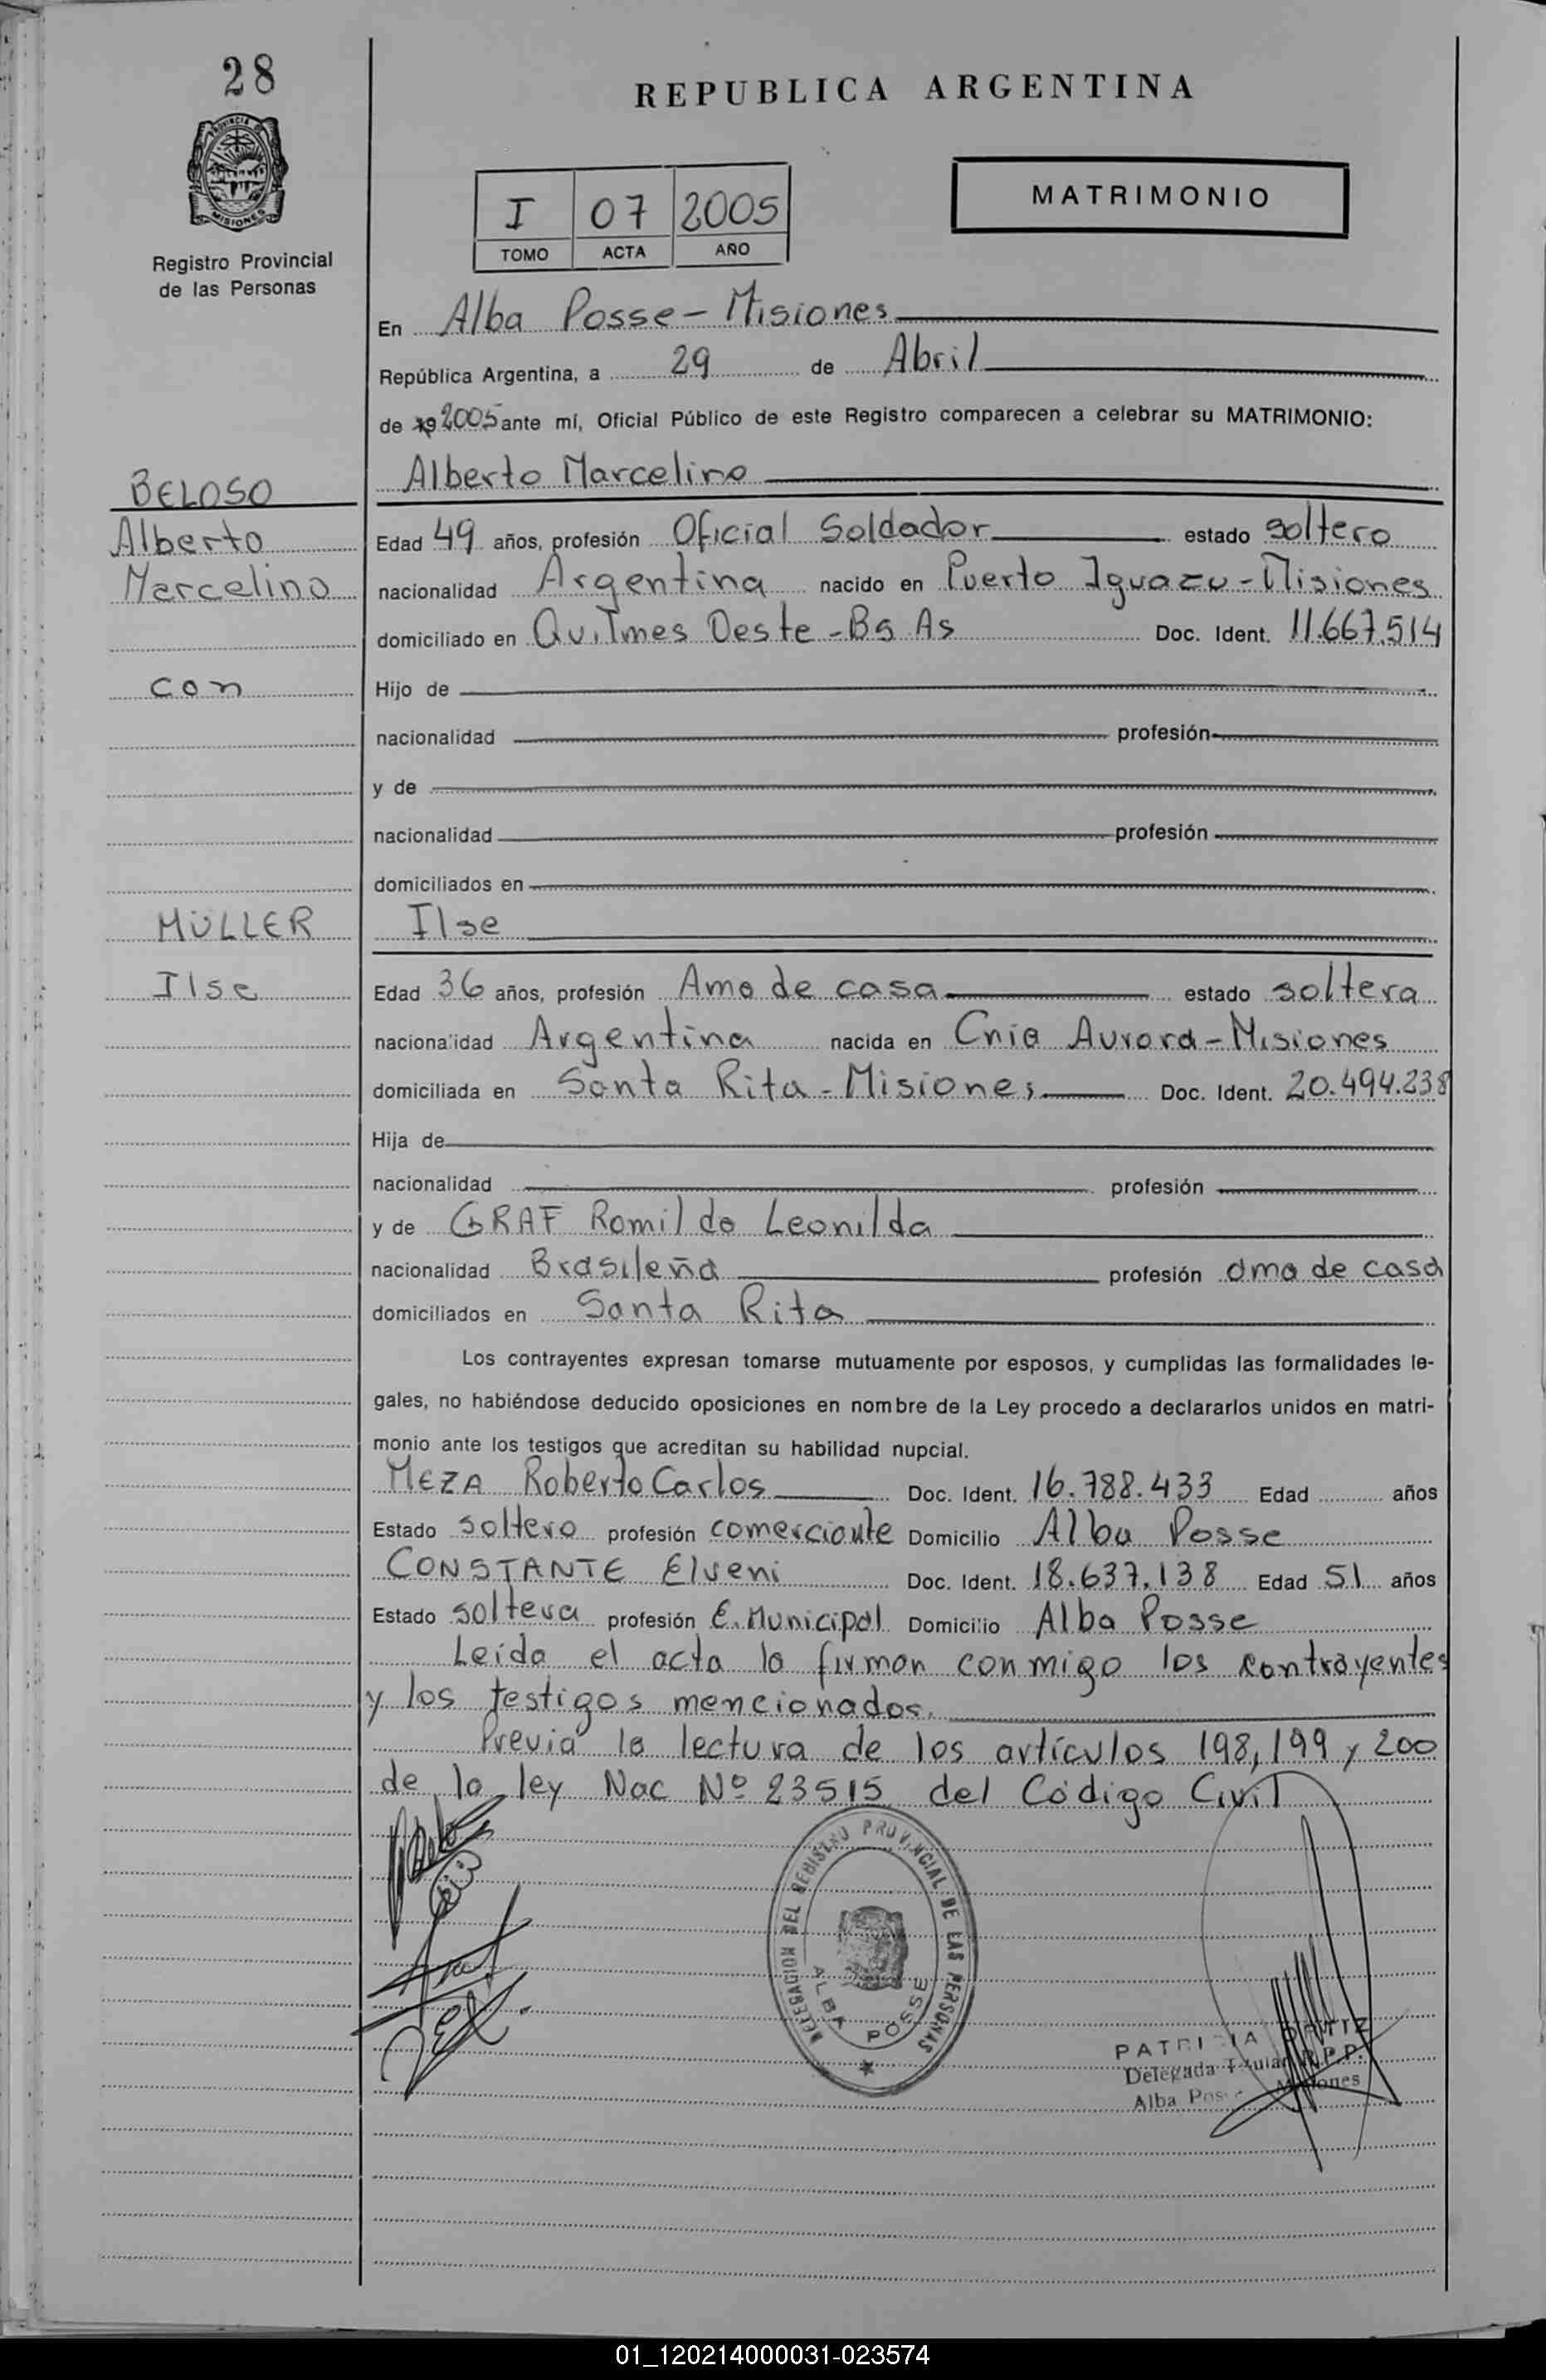 28
REPUBLICA ARGENTINA
PROVINCIA DE
MISIONES
Registro Provincial
de las Personas
I 07 2005
TOMO ACTA AÑO
MATRIMONIO
En Alba Posse - Misiones
República Argentina, a 29 de Abril
de 19 2005 ante mí, Oficial Público de este Registro comparecen a celebrar su MATRIMONIO:
BELOSO Alberto Marcelino
Alberto Edad 49 años, profesión Oficial Soldador estado soltero
Marcelino nacionalidad Argentina nacido en Puerto Iguazu - Misiones
domiciliado en Quilmes Oeste - Bs As Doc. Ident. 11.667.514
con Hijo de
nacionalidad profesión
y de
nacionalidad profesión
domiciliados en
MÜLLER Ilse
Ilse Edad 36 años, profesión Ama de casa estado soltera
nacionalidad Argentina nacida en Cnia Aurora - Misiones
domiciliada en Santa Rita - Misiones Doc. Ident. 20.494.238
Hija de
nacionalidad profesión
y de GRAF Romilda Leonilda
nacionalidad Brasileña profesión ama de casa
domiciliados en Santa Rita
Los contrayentes expresan tomarse mutuamente por esposos, y cumplidas las formalidades le-
gales, no habiéndose deducido oposiciones en nombre de la Ley procedo a declararlos unidos en matri-
monio ante los testigos que acreditan su habilidad nupcial.
MEZA Roberto Carlos Doc. Ident. 16.788.433 Edad años
Estado soltero profesión comerciante Domicilio Alba Posse
CONSTANTE Elveni Doc. Ident. 18.637.138 Edad 51 años
Estado soltera profesión E. Municipal Domicilio Alba Posse
Leida el acta la firman conmigo los contrayentes
y los testigos mencionados.
Previa la lectura de los artículos 198, 199 y 200
de la ley Nac Nº 23515 del Código Civil
DELEGACION DEL REGISTRO PROVINCIAL DE LAS PERSONAS
ALBA POSSE
PATRICIA ORTIZ
Delegada Titular R.P.P.
Alba Posse Misiones
01_120214000031-023574